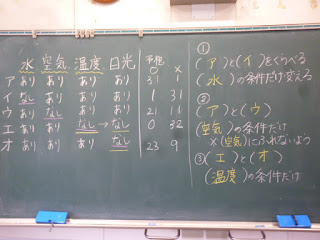 水 空気 温度 日光 予想 ○ ×
ア あり あり あり あり 31 1
イ なし あり あり あり 1 31
ウ あり なし あり あり 21 11
エ あり あり なし→なし 0 32
オ あり あり あり なし 23 9
①
(ア)と(イ)をくらべる
(水)の条件だけ変える
②
(ア)と(ウ)
(空気)の条件だけ
×(空気)にふれないよう
③(エ)と(オ)
(温度)の条件だけ